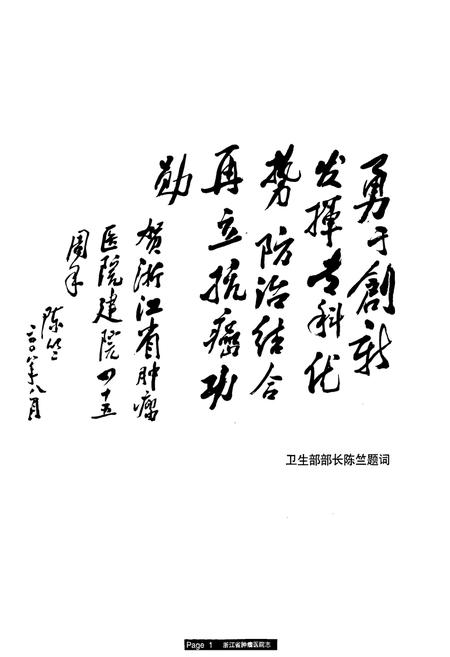 勇于創新
发揮专科优
势防治结合
再立抗癌功
勋
贺浙江省肿瘤
医院建院四十五
周年
陈竺
二〇〇八年八月
卫生部部长陈竺题词
Page 1 浙江省肿瘤医院志